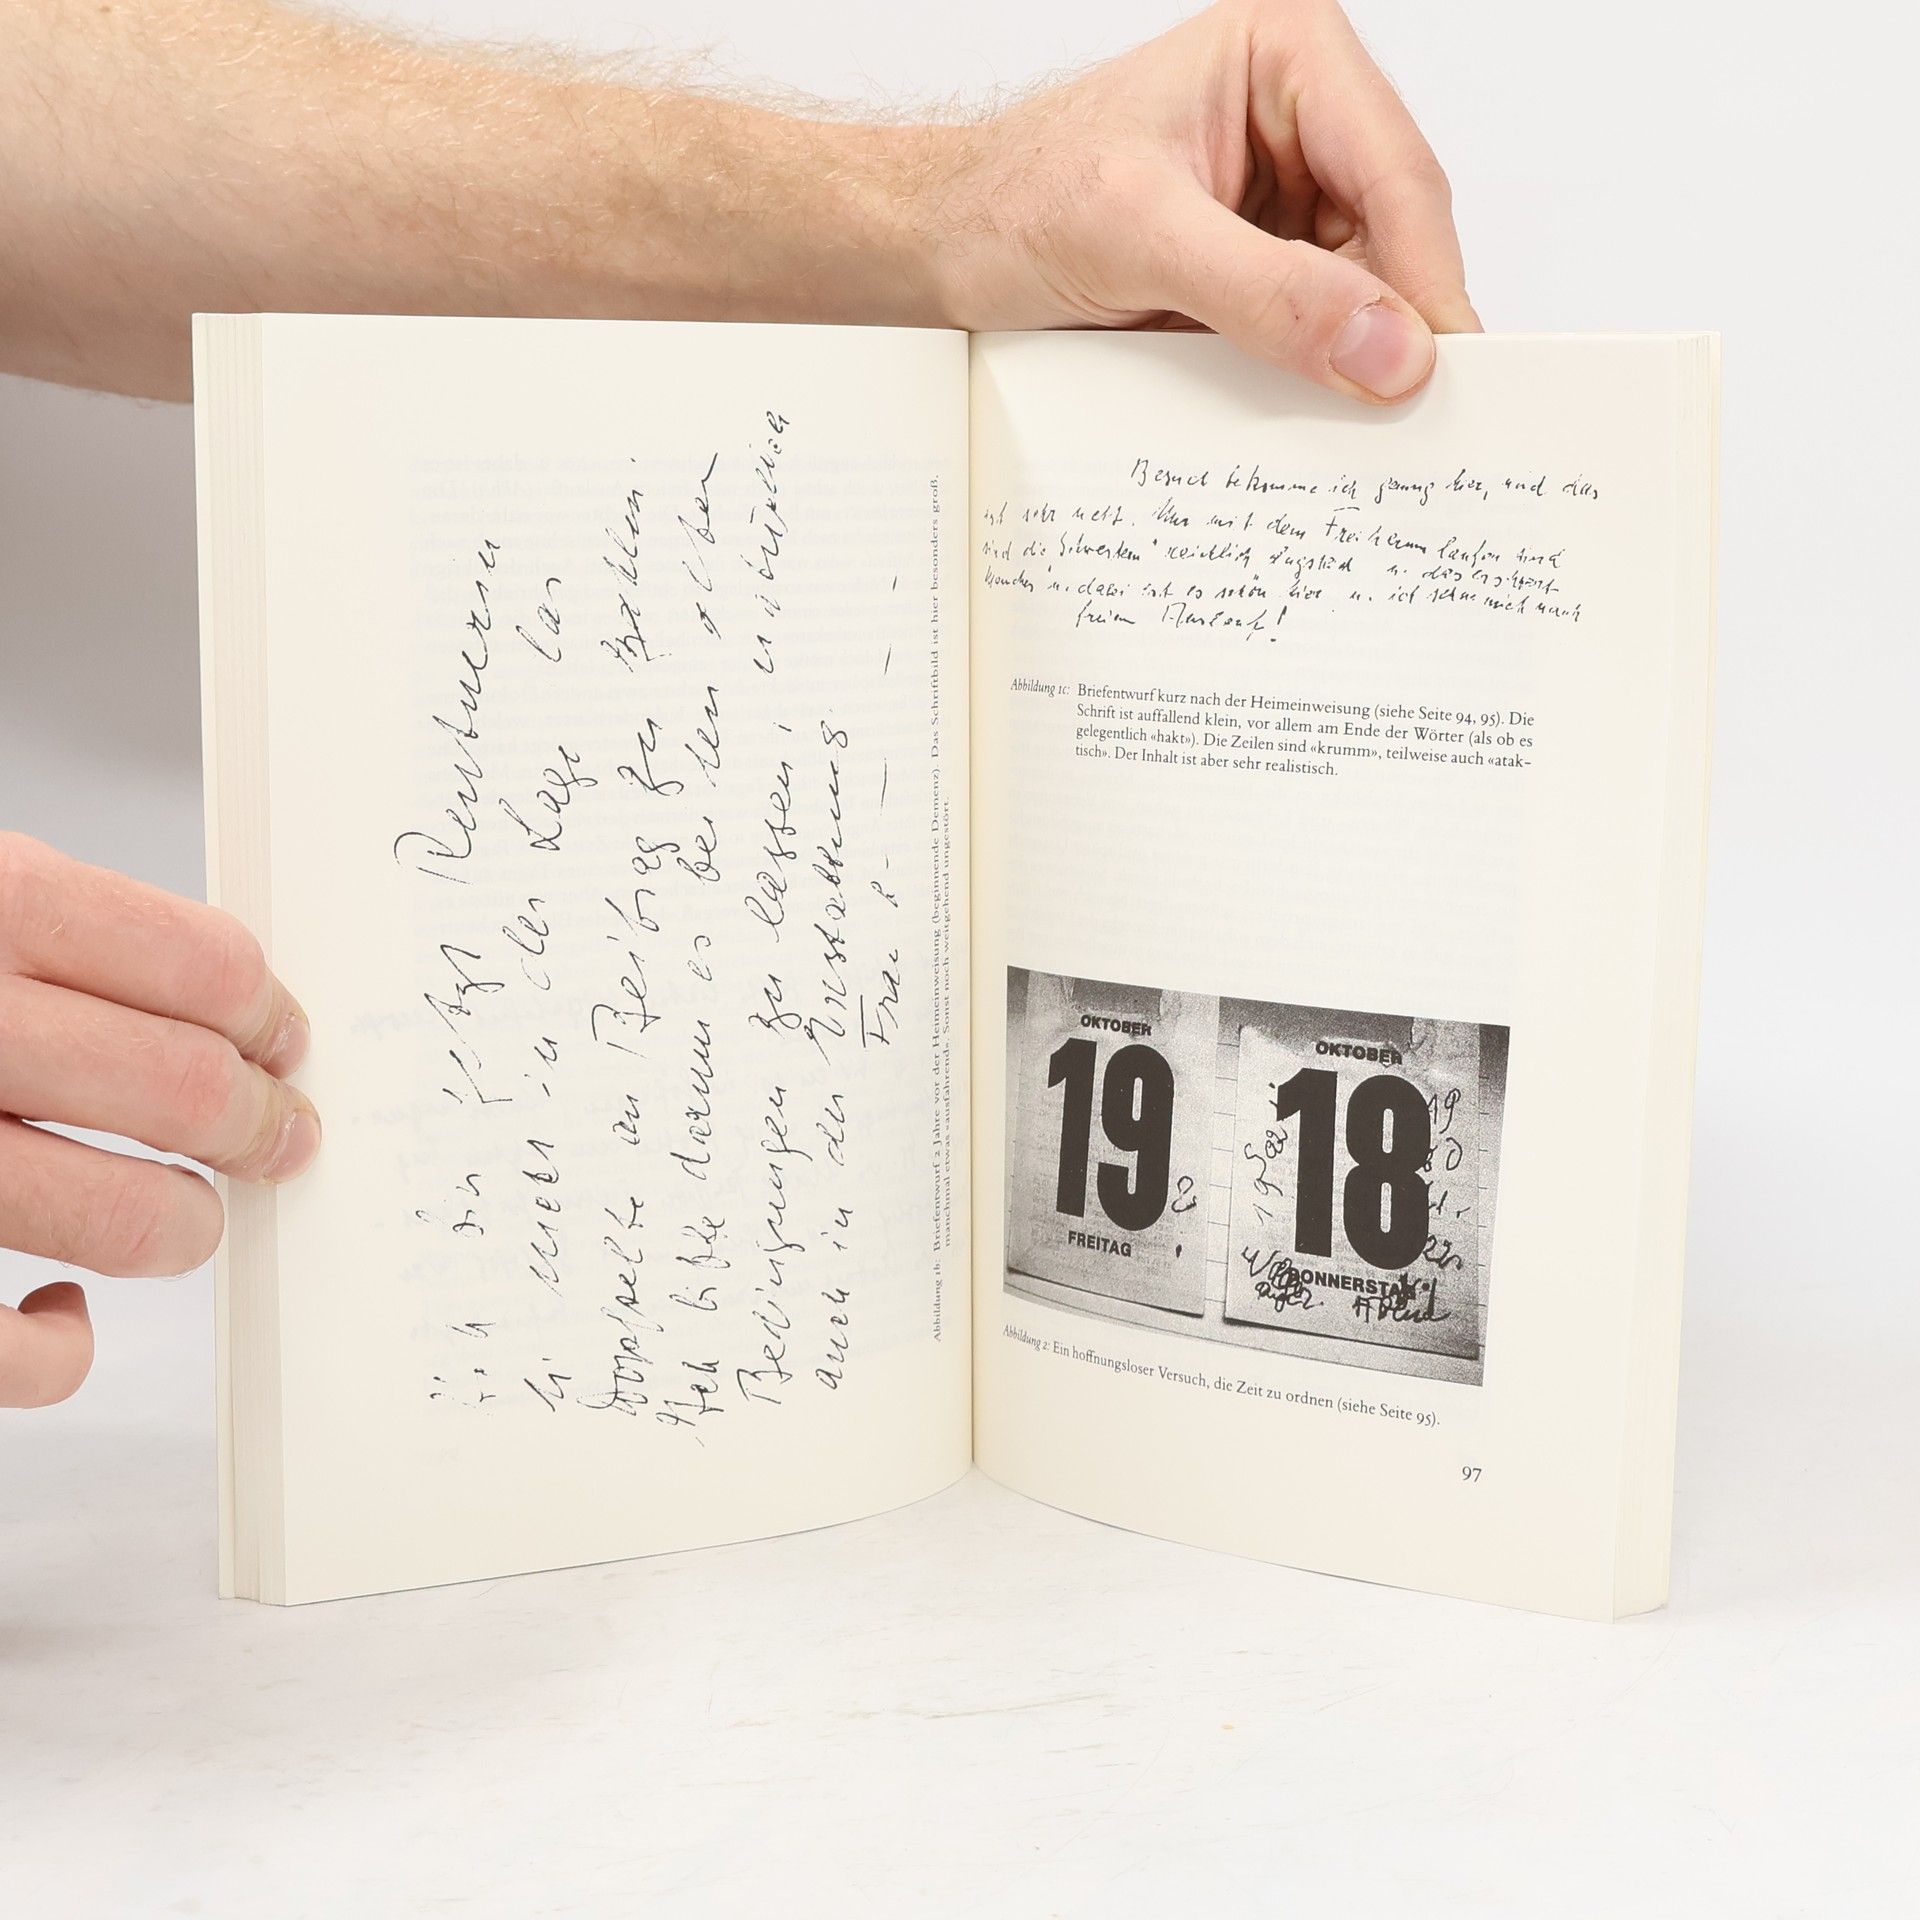 Ich bin jetzt Rentnerin
u. nicht in der Lage das
Doppelte im Beitrag zu zahlen.
Ich bitte darum es bei den alten
Bedingungen zu lassen, natürlich
auch in der Erstattung.
Frau
Abbildung 1b: Briefentwurf 2 Jahre vor der Heimeinweisung (beginnende Demenz). Das Schriftbild ist hier besonders groß,
manchmal etwas «ausfahrend». Sonst noch weitgehend ungestört.
Besuch bekomme ich genug hier, und das
ist sehr nett. Nur mit dem Frei herum laufen sind
sind die Schwestern reichlich ängstlich u. das erschwert
manches u. dabei ist es schön hier u. ich sehne mich nach
freiem Auslauf!
Abbildung 1c: Briefentwurf kurz nach der Heimeinweisung (siehe Seite 94, 95). Die
Schrift ist auffallend klein, vor allem am Ende der Wörter (als ob es
gelegentlich «hakt»). Die Zeilen sind «krumm», teilweise auch «atak-
tisch». Der Inhalt ist aber sehr realistisch.
OKTOBER
19
FREITAG
OKTOBER
18
DONNERSTAG
Abbildung 2: Ein hoffnungsloser Versuch, die Zeit zu ordnen (siehe Seite 95).
97